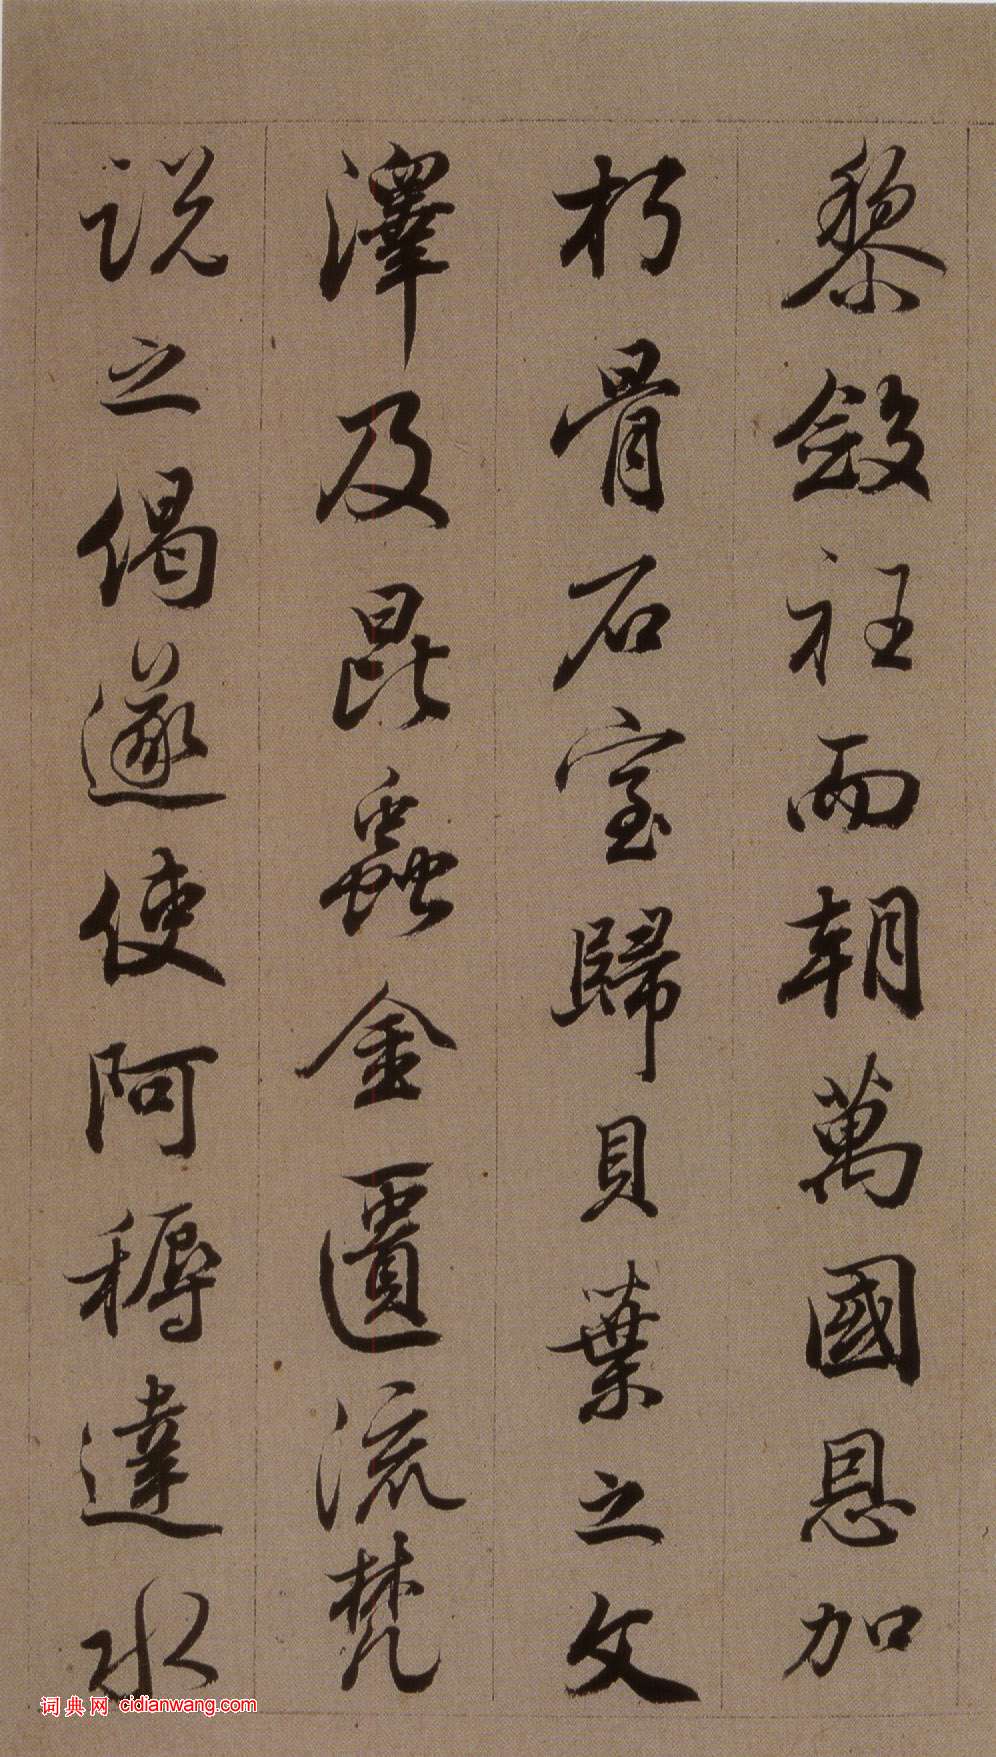 黎斂衽而朝萬國恩加
朽骨石室歸貝葉之文
澤及昆蟲金匱流梵
説之偈遂使阿耨達水
词典网 cidianwang.com